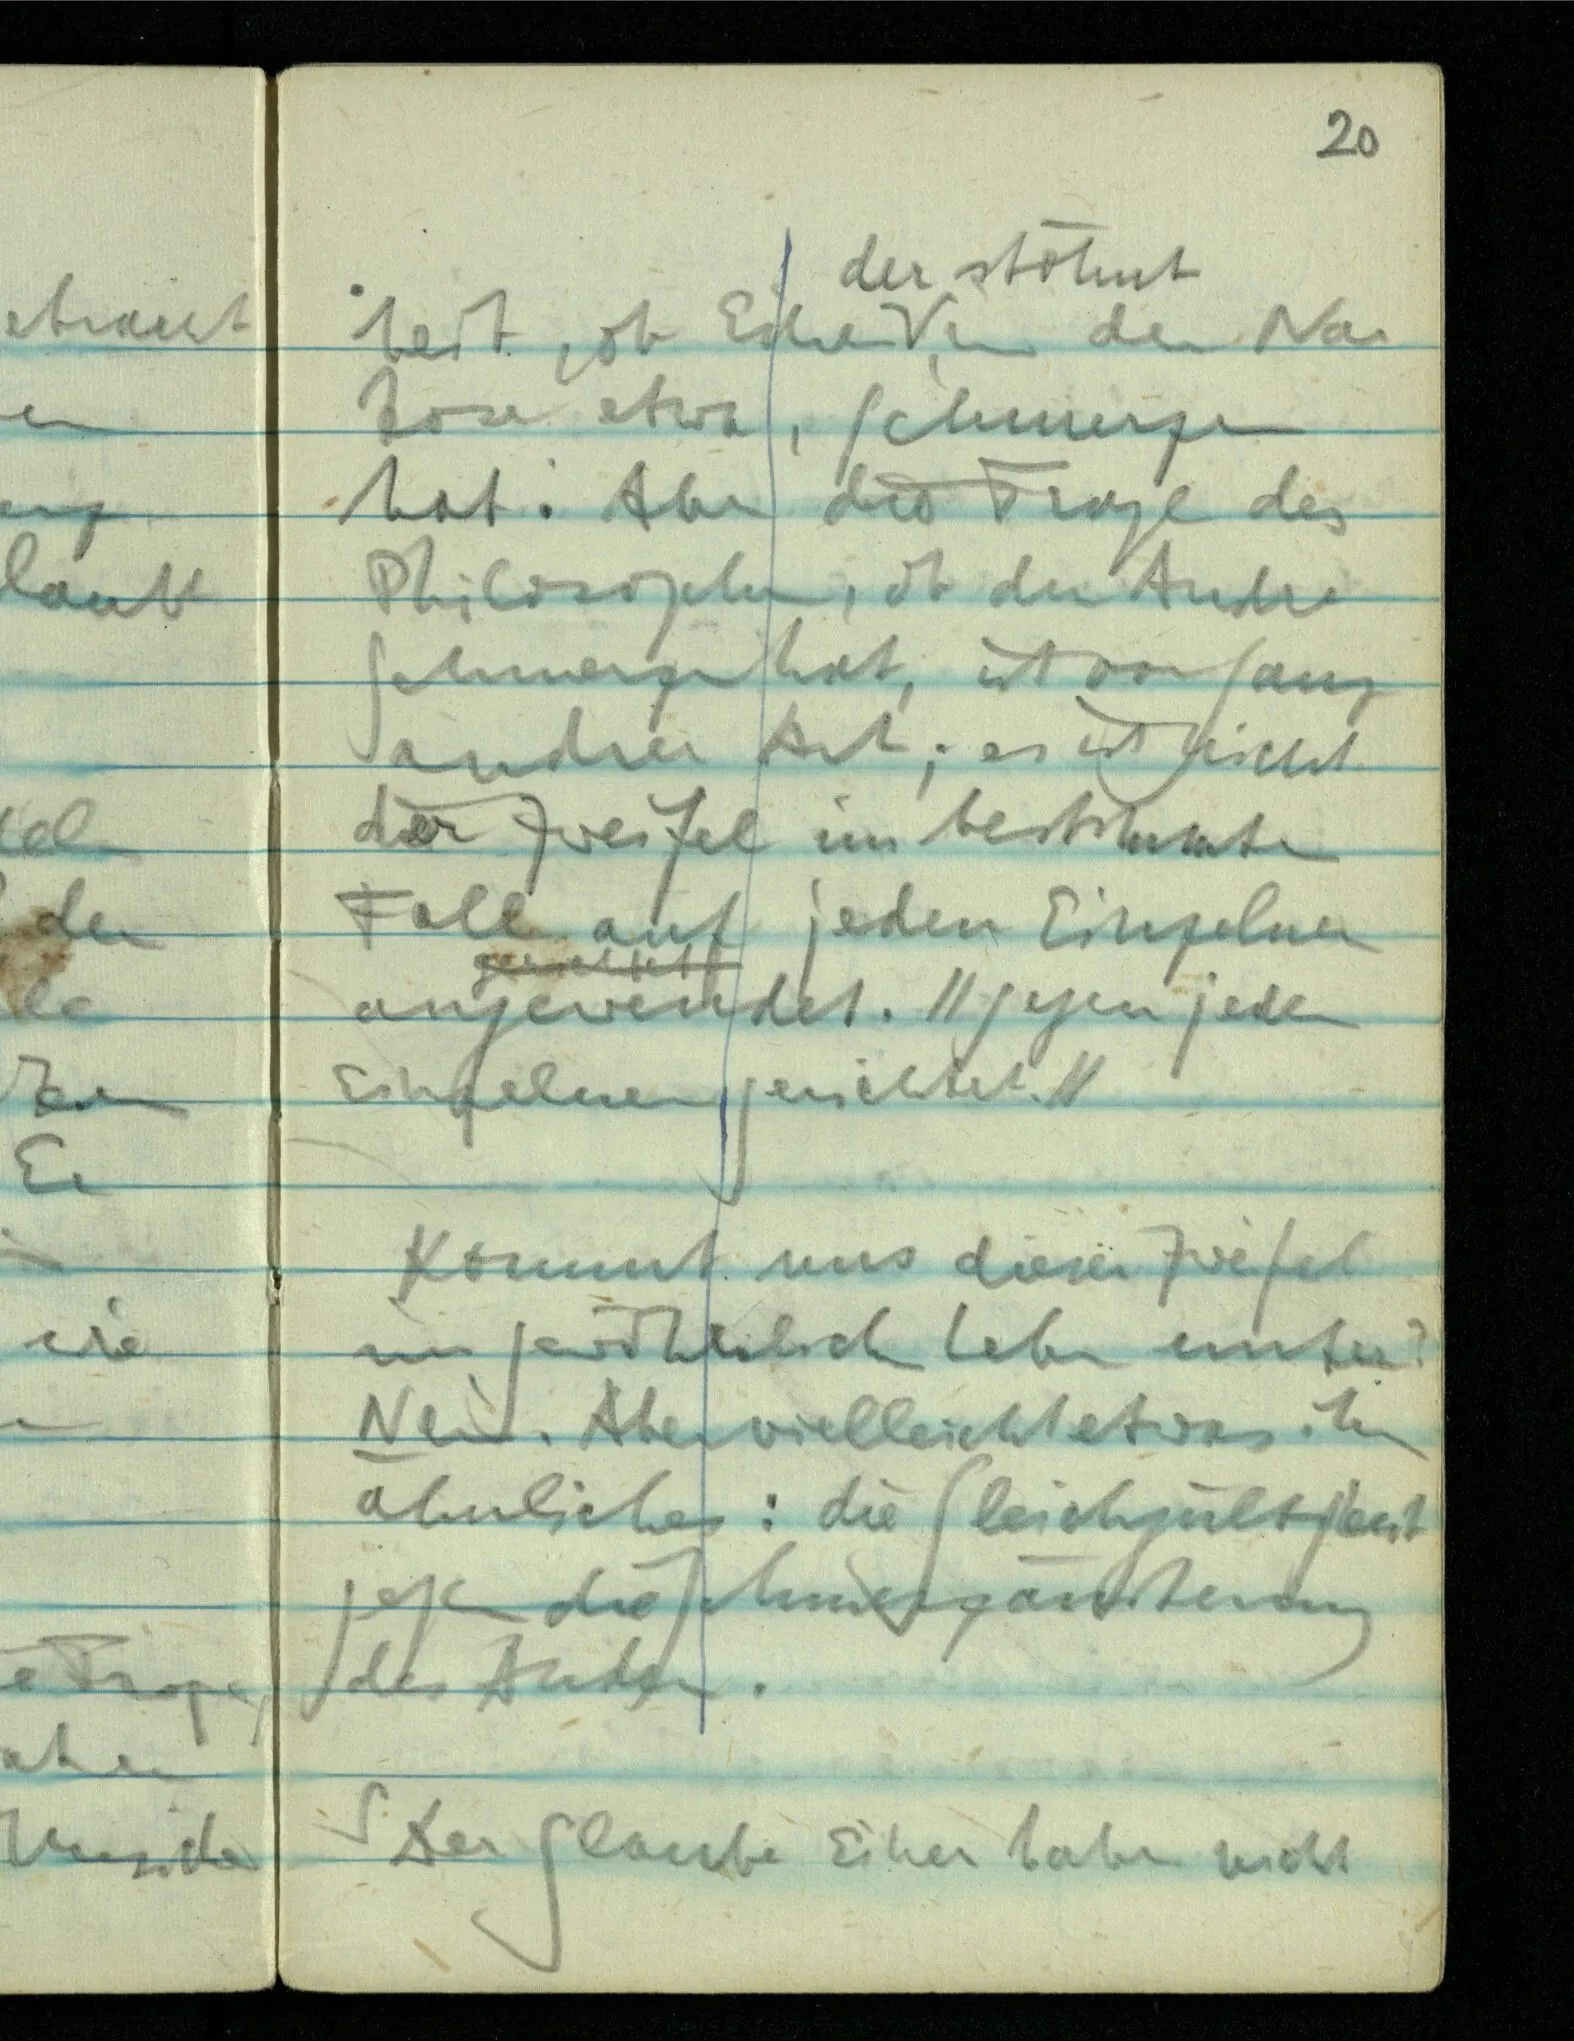 20
der stöhnt
heit, ob Einer V, in der Nar
kose etwa, Schmerzen
hat. Aber die Frage des
Philosophen, ob der Andre
Schmerzen hat, ist von ganz
andrer Art; es ist nicht
der Zweifel im bestimmten
Fall auf jeden Einzelnen
gerichtet
angewendet. // gegen jeden
Einzelnen gerichtet. //
Kommt uns dieser Zweifel
im gewöhnlichen Leben unter?
Nein. Aber vielleicht etwas ihm
ähnliches: die Gleichgültigkeit
gegen die Schmerzäußerung
des Andern.
Der Glaube Einer habe nicht
etracht
en
laubt
den
Er
wie
e Frage,